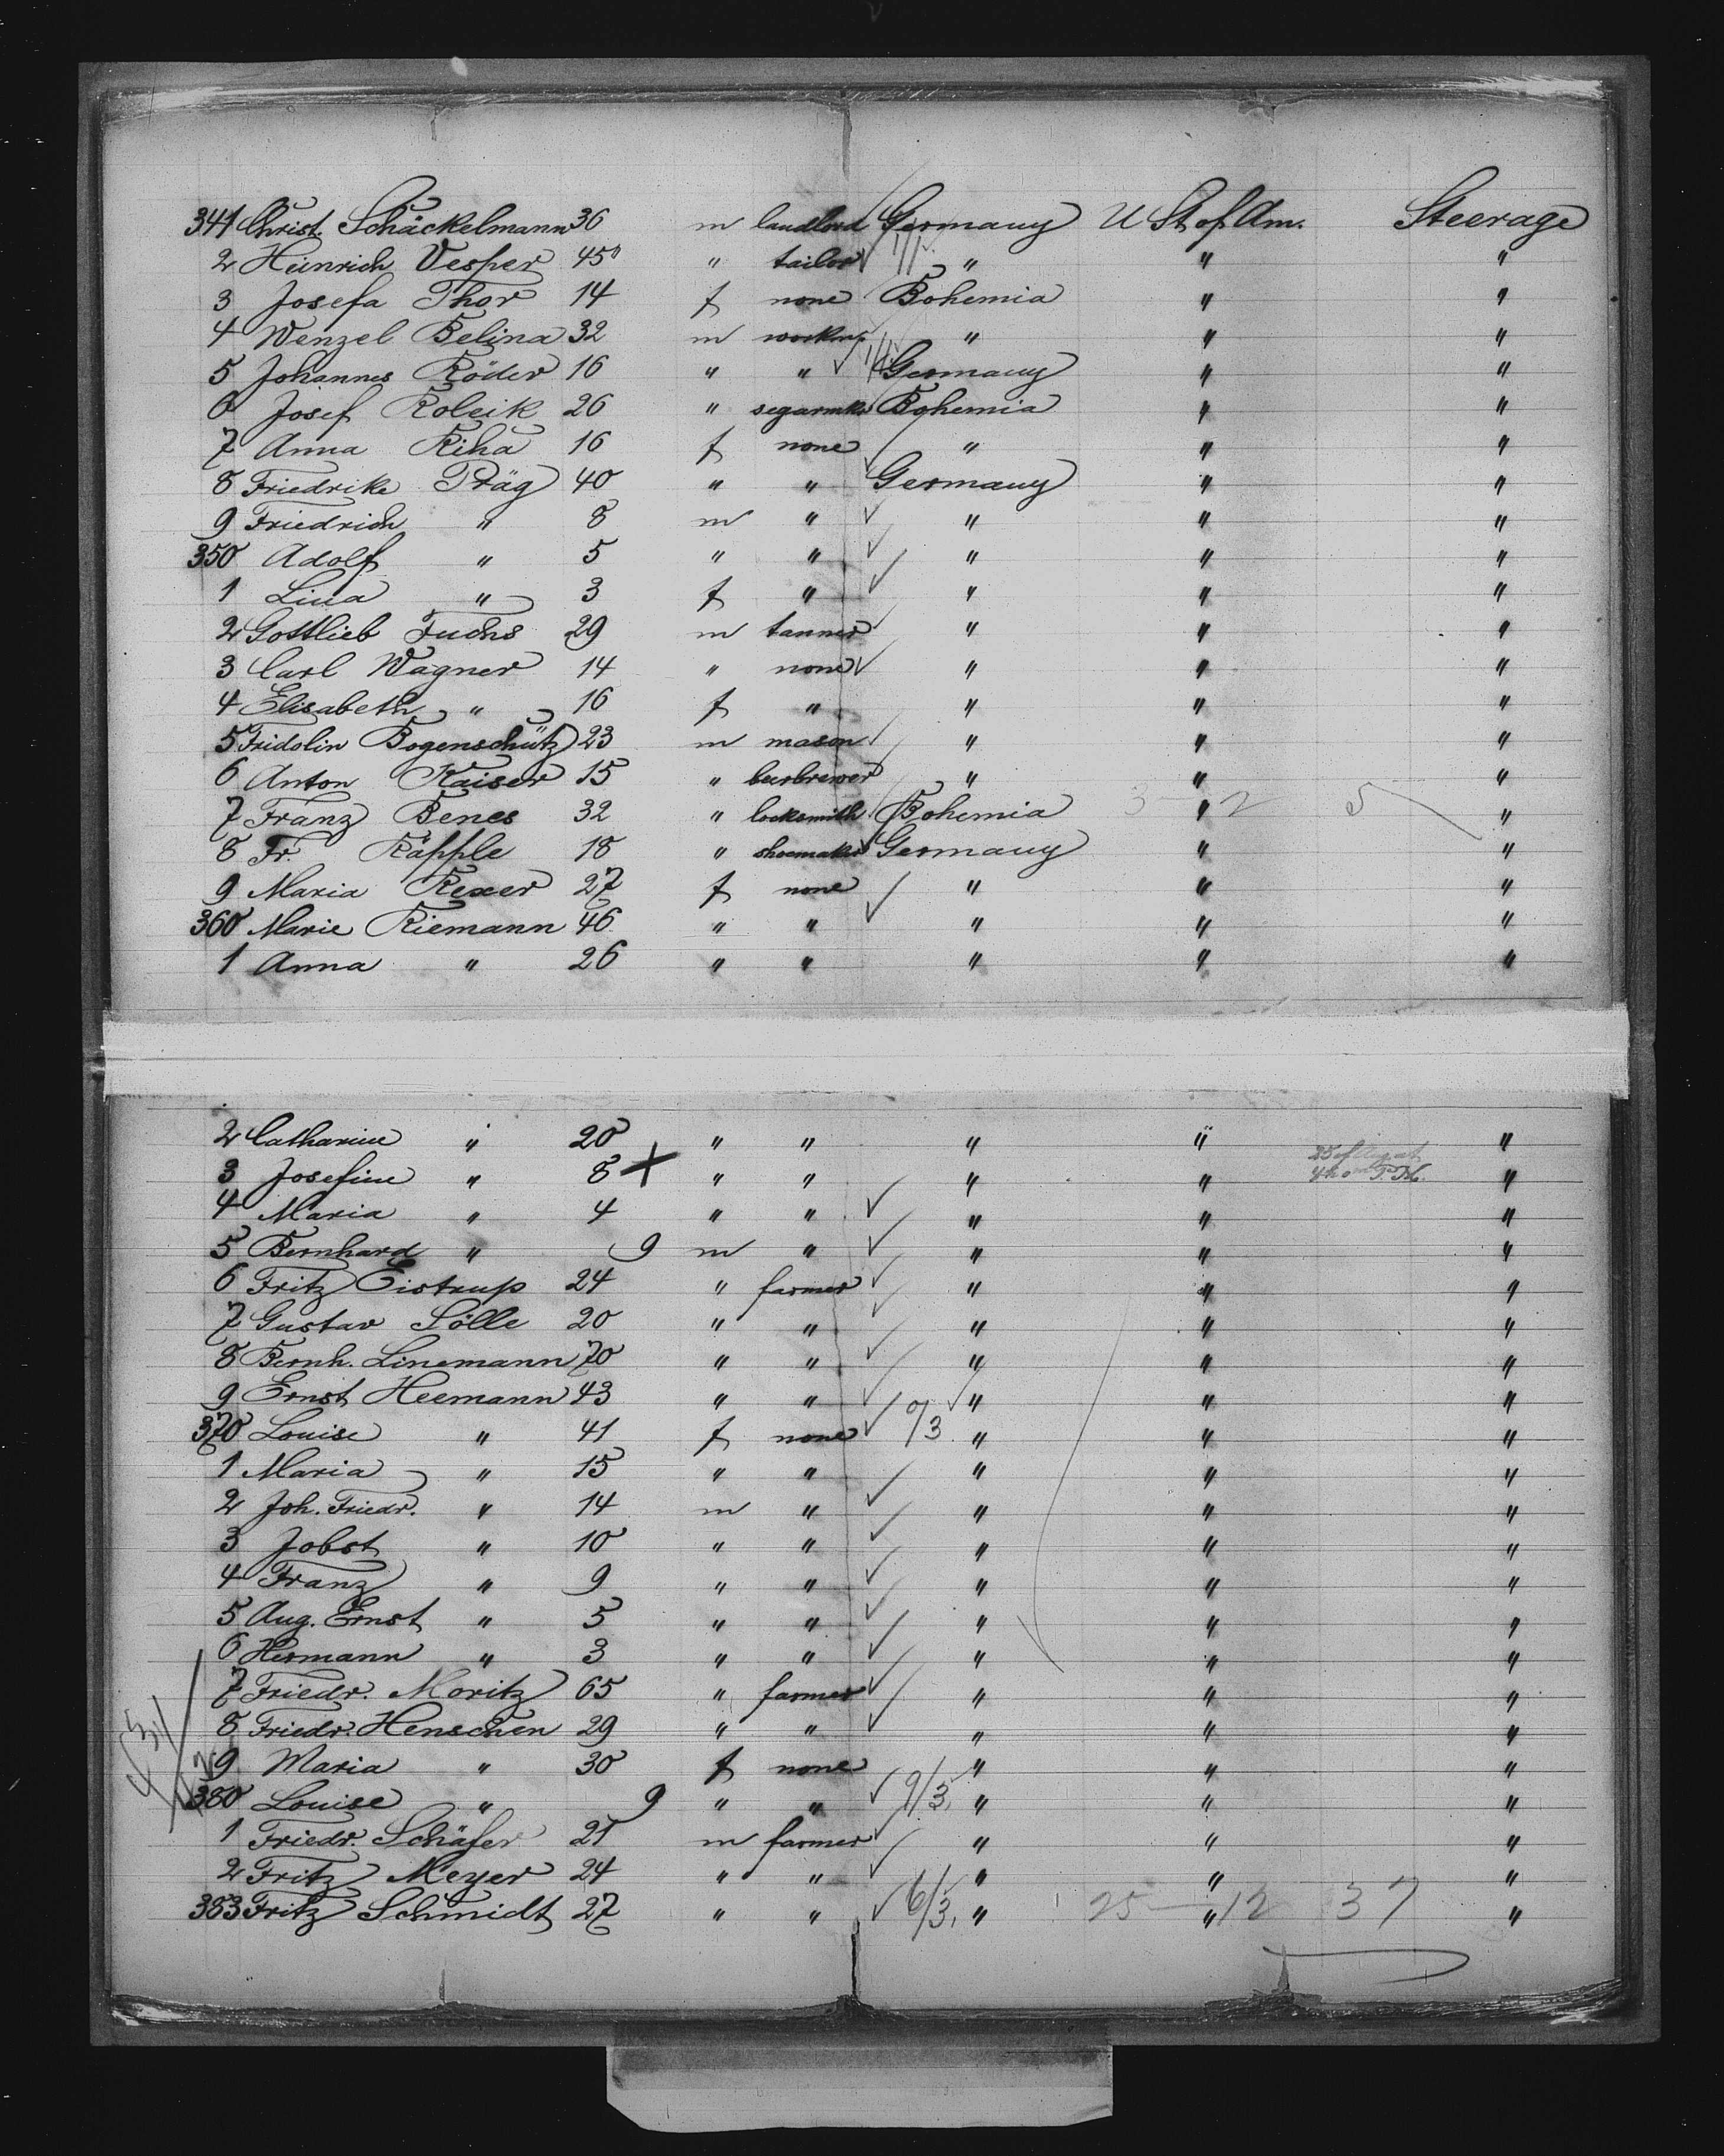 341 Christ. Schäckelmann 36 m landlord Germany U St of Am. Steerage
2 Heinrich Vesper 45 " tailor " " "
3 Josefa Thor 14 f none Bohemia " "
4 Wenzel Belina 32 m workm. " " "
5 Johannes Röder 16 " " Germany " "
6 Josef Rolcik 26 " segarmkr Bohemia " "
7 Anna Riha 16 f none " " "
8 Friedrike Präg 40 " " Germany " "
9 Friedrich " 8 m " " " "
350 Adolf " 5 " " " " "
1 Lina " 3 f " " " "
2 Gottlieb Fuchs 29 m tanner " " "
3 Carl Wagner 14 " none " " "
4 Elisabeth " 16 f " " " "
5 Fridolin Bogenschütz 23 m mason " " "
6 Anton Kaiser 15 " beerbrewer " " "
7 Franz Benes 32 " locksmith Bohemia 3 " 2 5 "
8 Fr. Räpple 18 " shoemaker Germany " "
9 Maria Rexer 27 f none " " "
360 Marie Riemann 46 " " " " "
1 Anna " 26 " " " " "
2 Catharine " 20 " " " " "
3 Josefine " 8 + " " " " 25 of Aug at 4 ho P.M. "
4 Maria " 4 " " " " "
5 Bernhard " 9 m " " " "
6 Fritz Eistrup 24 " farmer " " "
7 Gustav Sölle 20 " " " " "
8 Bernh. Linemann 70 " " " " "
9 Ernst Heemann 43 " " " " "
370 Louise " 41 f none /3 " " "
1 Maria " 15 " " " " "
2 Joh. Friedr. " 14 m " " " "
3 Jobst " 10 " " " " "
4 Franz " 9 " " " " "
5 Aug. Ernst " 5 " " " " "
6 Hermann " 3 " " " " "
7 Friedr. Moritz 65 " farmer " " "
8 Friedr. Henschen 29 " " " " "
9 Maria " 30 f none " " "
380 Louise " 9 " " 9/3 " " "
1 Friedr. Schäfer 21 m farmer " " "
2 Fritz Meyer 24 " " " " "
383 Fritz Schmidt 27 " " 6/3 " 25 " 12 37 "